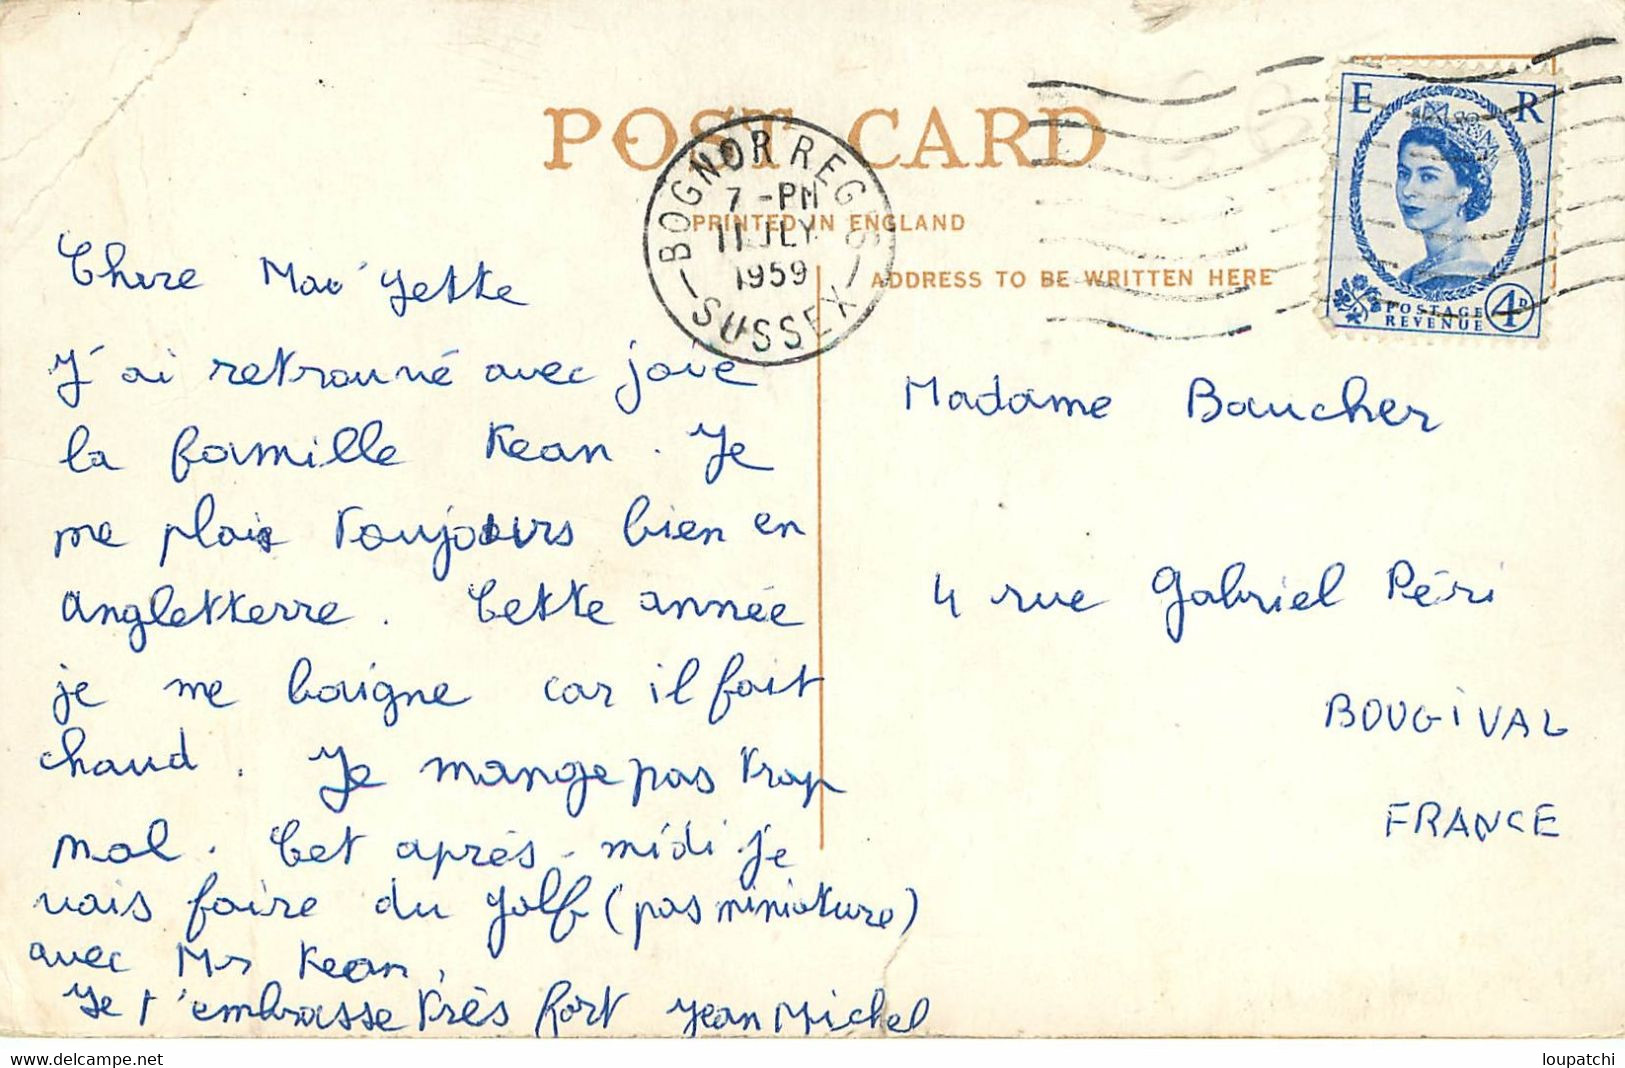 POST CARD
PRINTED IN ENGLAND
ADDRESS TO BE WRITTEN HERE
BOGNOR REGIS
7-PM
11 JLY
1959
SUSSEX
E R
POSTAGE
REVENUE
4D
Chère Mao' Yette
J'ai retrouvé avec joie
la famille Kean. Je
me plais toujours bien en
angletterre. Cette année
je me baigne car il fait
chaud. Je mange pas trop
mal. Cet après-midi je
vais faire du golf (pas miniature)
avec Mr Kean,
Je t'embrasse très fort Jean Michel
Madame Baucher
4 rue Gabriel Péri
BOUGIVAL
FRANCE
www.delcampe.net
loupatchi